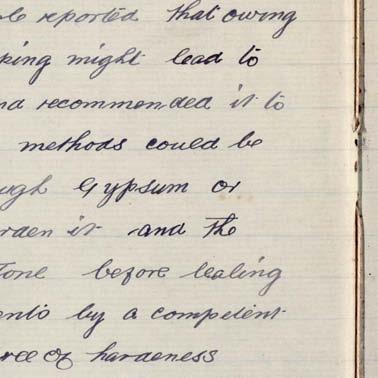 reported that owing
might lead to
recommended it to
methods could be
Gypsum or
it and the
before lealing
by a competent
of hardeness